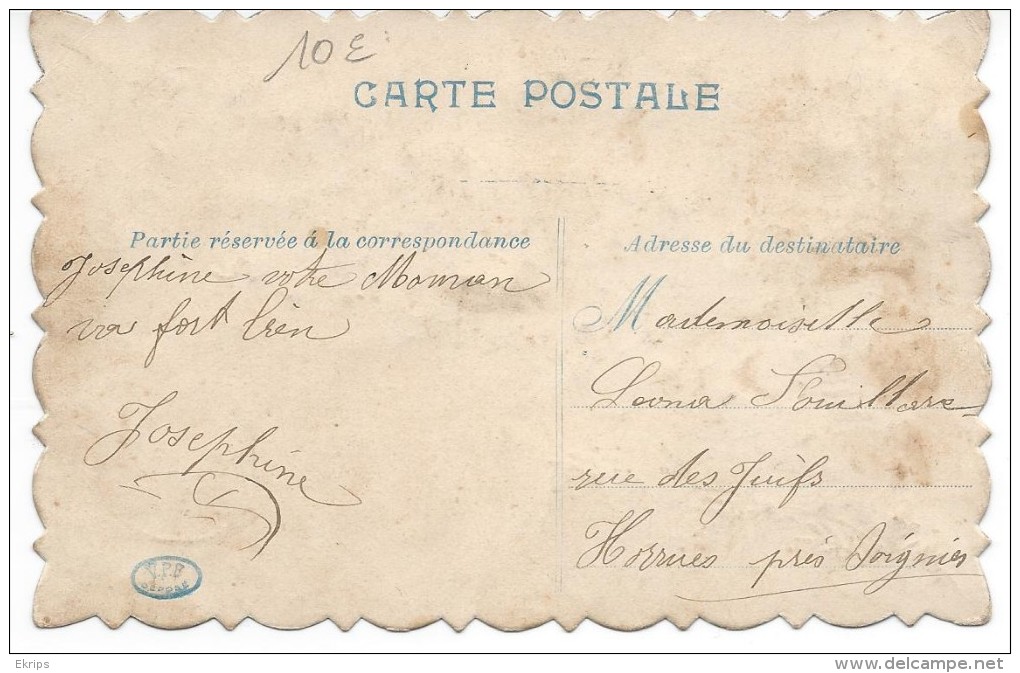 10 E
CARTE POSTALE
Partie réservée à la correspondance
Josephine votre Maman
va fort bien
Josephine
Adresse du destinataire
Mademoiselle
Leona
rue des Juifs
Horrues près Soignies
DEPOSE
Ekrips
www.delcampe.net